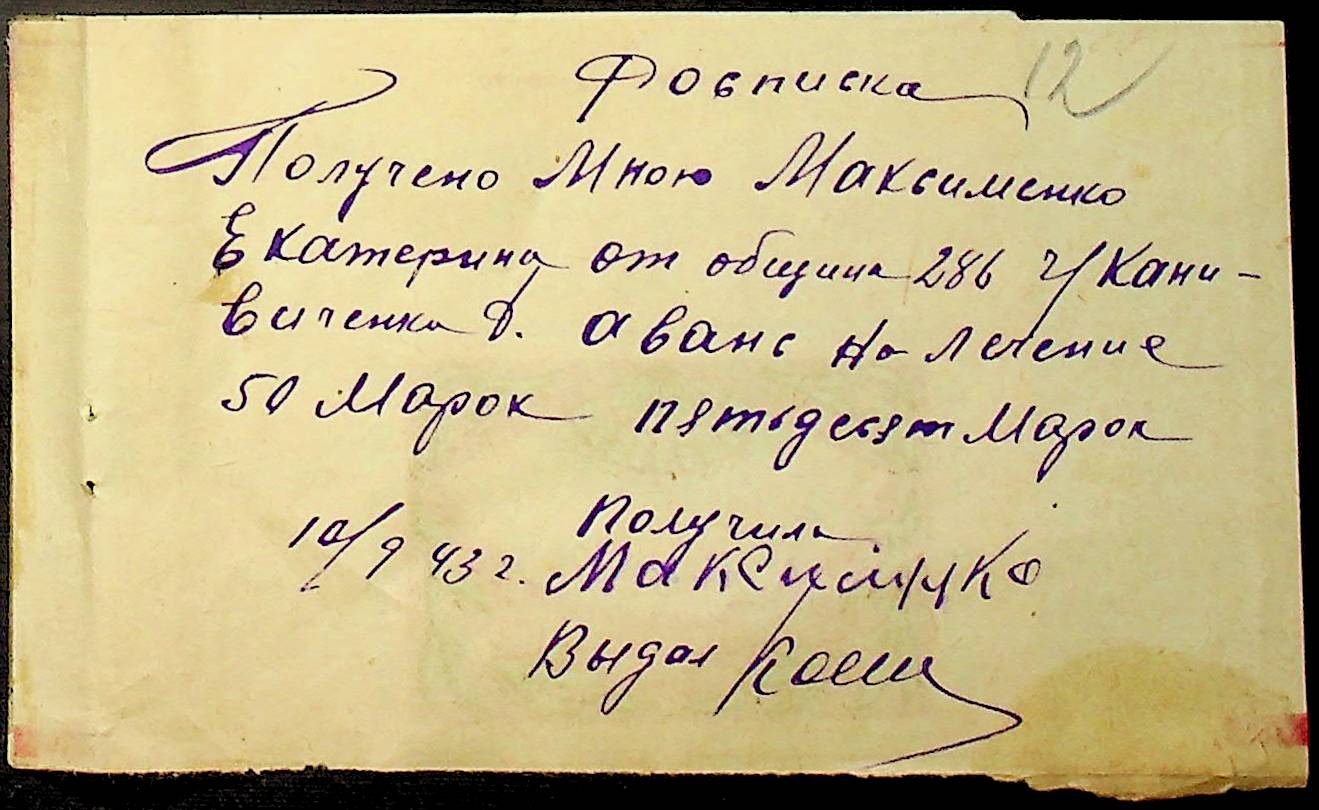 Росписка 12
Получено Мною Максименко
Екатерина от община 286 ч/Кани-
виченка Д. аванс на лечение
50 Марок пятьдесят Марок
Получила
10/9 43 г. Максименко
Выдал